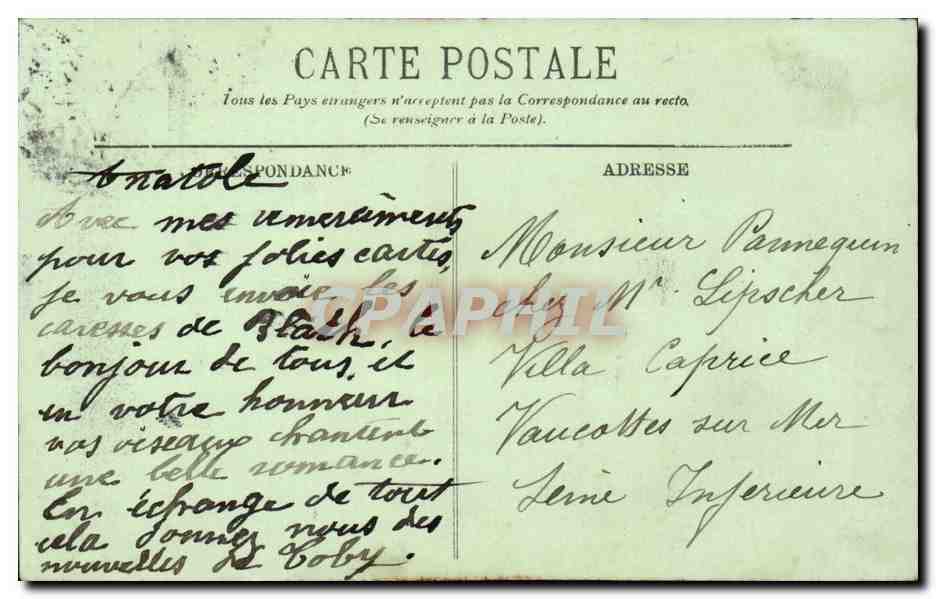 CARTE POSTALE
Tous les Pays étrangers n'acceptent pas la Correspondance au recto.
(Se renseigner à la Poste).
CORRESPONDANCE
Anatole
Avec mes remerciements
pour vos jolies cartes,
je vous envoie les
caresses de Black, le
bonjour de tous, et
en votre honneur
vos oiseaux chantent
une belle romance.
En échange de tout
cela donnez nous des
nouvelles de Toby.
ADRESSE
Monsieur Pannequin
chez Mr. Lipscher
Villa Caprice
Vaucottes sur Mer
Seine Inferieure
CPAPHIL